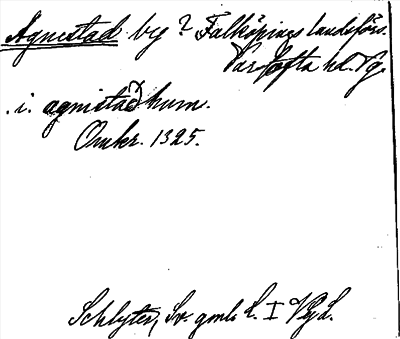 Agnestad by? Falköpings landsförs.
Vartofta hd. Vg.
i. agnistadhum.
Omkr. 1325.
Schlyter, Sv. gml. L. I Vgl.